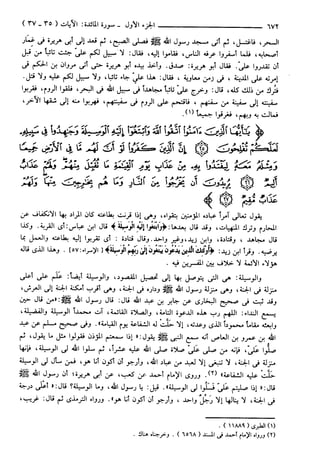 ٦٧٢ الجزء الأول - سورة المائدة: الآيات ( ٣٥ - ٣٧ )
السحر، فاغتسل، ثم أتى مسجد رسول الله ﷺ فصلى الصبح، ثم قعد إلى أبي هريرة في غمار
أصحابه، فلما أسفروا عرفه الناس، فقاموا إليه، فقال: لا سبيل لكم عليّ جئت تائباً من قبل
أن تقدروا عليّ. فقال أبو هريرة: صدق. وأخذ بيده أبو هريرة حتى أتى مروان بن الحكم في
إمرته على المدينة، في زمن معاوية، فقال: هذا عليّ جاء تائباً، ولا سبيل لكم عليه ولا قتل.
فترك من ذلك كله، قال: وخرج عليّ تائباً مجاهداً في سبيل الله في البحر، فلقوا الروم، فقربوا
سفينته إلى سفينة من سفنهم، فاقتحم على الروم في سفينتهم، فهربوا منه إلى شقها الآخر،
فمالت به وبهم، فغرقوا جميعاً (١).
يَٰٓأَيُّهَا ٱلَّذِينَ ءَامَنُوا۟ ٱتَّقُوا۟ ٱللَّهَ وَٱبْتَغُوٓا۟ إِلَيْهِ ٱلْوَسِيلَةَ وَجَٰهِدُوا۟ فِى سَبِيلِهِۦ
لَعَلَّكُمْ تُفْلِحُونَ ﴿٣٥﴾ إِنَّ ٱلَّذِينَ كَفَرُوا۟ لَوْ أَنَّ لَهُم مَّا فِى ٱلْأَرْضِ جَمِيعًا
وَمِثْلَهُۥ مَعَهُۥ لِيَفْتَدُوا۟ بِهِۦ مِنْ عَذَابِ يَوْمِ ٱلْقِيَٰمَةِ مَا تُقُبِّلَ مِنْهُمْ وَلَهُمْ عَذَابٌ
أَلِيمٌ ﴿٣٦﴾ يُرِيدُونَ أَن يَخْرُجُوا۟ مِنَ ٱلنَّارِ وَمَا هُم بِخَٰرِجِينَ مِنْهَا وَلَهُمْ
عَذَابٌ مُّقِيمٌ ﴿٣٧﴾
يقول تعالى آمراً عباده المؤمنين بتقواه، وهي إذا قرنت بطاعته كان المراد بها الانكفاف عن
المحارم وترك المنهيات، وقد قال بعدها: ﴿وابتغوا إليه الوسيلة﴾ قال ابن عباس: أي القربة. وكذا
قال مجاهد، وقتادة، وابن زيد، وغير واحد. وقال قتادة: أي تقربوا إليه بطاعته والعمل بما
يرضيه. وقرأ ابن زيد: ﴿أولئك الذين يدعون يبتغون إلى ربهم الوسيلة﴾ [الإسراء: ٥٧]. وهذا الذي قاله
هؤلاء الأئمة لا خلاف بين المفسرين فيه.
والوسيلة: هي التي يتوصل بها إلى تحصيل المقصود، والوسيلة أيضاً: علم على أعلى
منزلة في الجنة، وهي منزلة رسول الله ﷺ وداره في الجنة، وهي أقرب أمكنة الجنة إلى العرش،
وقد ثبت في صحيح البخاري عن جابر بن عبد الله قال: قال رسول الله ﷺ: «من قال حين
يسمع النداء: اللهم رب هذه الدعوة التامة، والصلاة القائمة، آت محمداً الوسيلة والفضيلة،
وابعثه مقاماً محموداً الذي وعدته، إلا حلت له الشفاعة يوم القيامة». وفي صحيح مسلم عن عبد
الله بن عمرو بن العاص أنه سمع النبي ﷺ يقول: «إذا سمعتم المؤذن فقولوا مثل ما يقول، ثم
صلوا عليّ، فإنه من صلى عليّ صلاة صلى الله عليه عشراً، ثم سلوا الله لي الوسيلة، فإنها
منزلة في الجنة، لا تنبغي إلا لعبد من عباد الله، وأرجو أن أكون أنا هو، فمن سأل لي الوسيلة
حلت عليه الشفاعة» (٢). وروى الإمام أحمد عن كعب، عن أبي هريرة؛ أن رسول الله ﷺ
قال: «إذا صليتم عليّ فسلوا لي الوسيلة». قيل: يا رسول الله، وما الوسيلة؟ قال: «أعلى درجة
في الجنة، لا ينالها إلا رجل واحد، وأرجو أن أكون أنا هو». ورواه الترمذي ثم قال: غريب،
(١) الطبري ( ١١٨٨٩ ).
(٢) ورواه الإمام أحمد في المسند ( ٦٥٦٨ ). وخرجناه هناك.